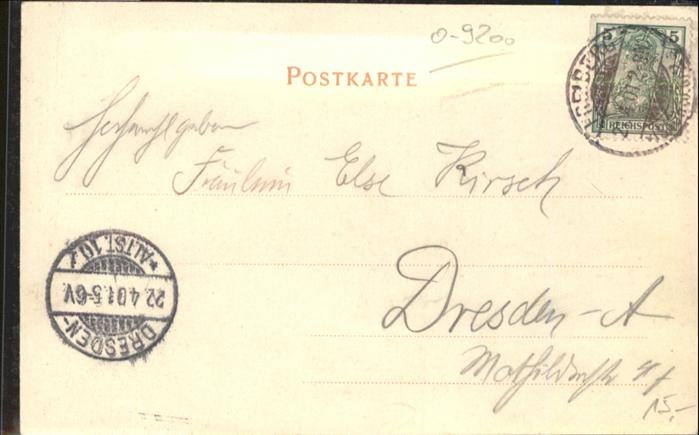 0-9200
POSTKARTE
5 5
REICHSPOST
Hochwohlgeboren
Fräulein Else Kirsch
Dresden-A
Mathildenstr
DRESDEN-
ALTST. 10
22.4.01.5-6V.
15,-